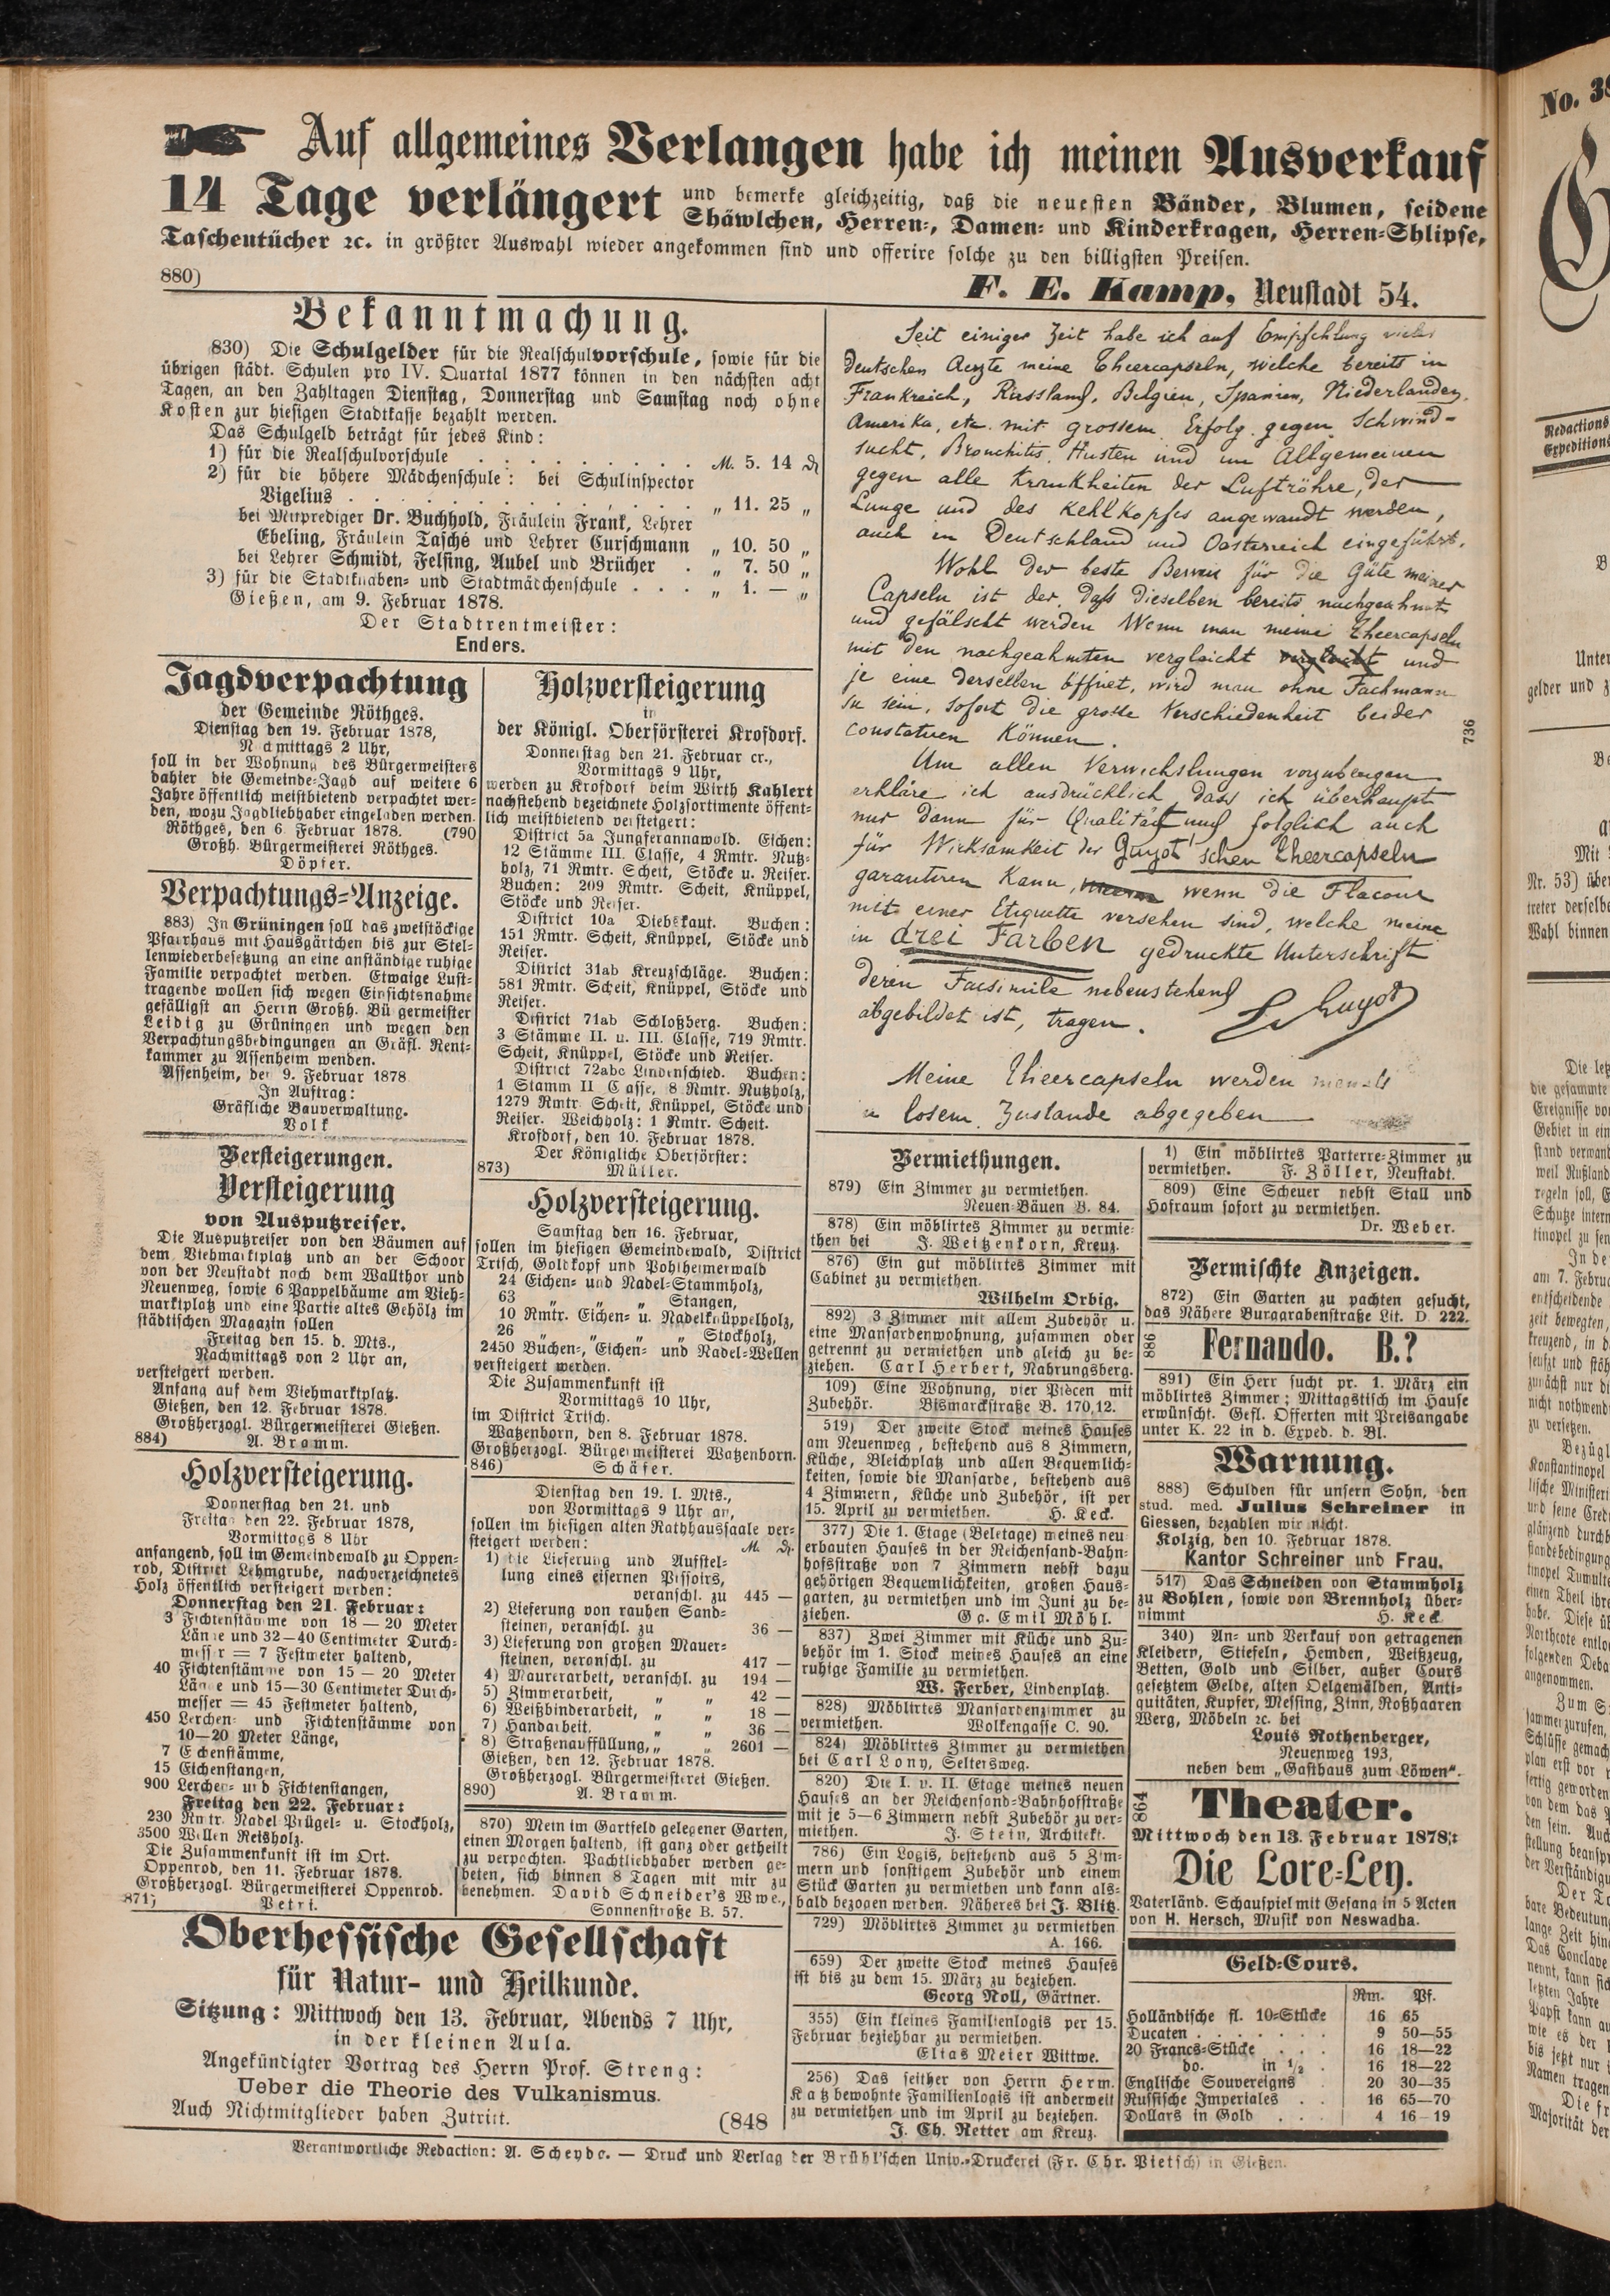 Auf allgemeines Verlangen habe ich meinen Ausverkauf
14 Tage verlängert und bemerke gleichzeitig, daß die neuesten Bänder, Blumen, seidene
Shäwlchen, Herren-, Damen- und Kinderkragen, Herren-Shlipse,
Taschentücher ꝛc. in größter Auswahl wieder angekommen sind und offerire solche zu den billigsten Preisen.
880)
F. E. Kamp, Neustadt 54.
Bekanntmachung.
830) Die Schulgelder für die Realschulvorschule, sowie für die
übrigen städt. Schulen pro IV. Quartal 1877 können in den nächsten acht
Tagen, an den Zahltagen Dienstag, Donnerstag und Samstag noch ohne
Kosten zur hiesigen Stadtkasse bezahlt werden.
Das Schulgeld beträgt für jedes Kind:
1) für die Realschulvorschule . . . . . . . . M. 5. 14 ₰
2) für die höhere Mädchenschule: bei Schulinspector
Vigelius . . . . . . . . . . „ 11. 25 „
bei Mitprediger Dr. Buchhold, Fräulein Frank, Lehrer
Ebeling, Fräulein Tasché und Lehrer Curschmann „ 10. 50 „
bei Lehrer Schmidt, Felsing, Aubel und Brücher . „ 7. 50 „
3) für die Stadtknaben- und Stadtmädchenschule . . . „ 1. — „
Gießen, am 9. Februar 1878.
Der Stadtrentmeister:
Enders.
Jagdverpachtung
der Gemeinde Röthges.
Dienstag den 19. Februar 1878,
Nachmittags 2 Uhr,
soll in der Wohnung des Bürgermeisters
dahier die Gemeinde-Jagd auf weitere 6
Jahre öffentlich meistbietend verpachtet wer-
den, wozu Jagdliebhaber eingeladen werden.
Röthges, den 6. Februar 1878. (790
Großh. Bürgermeisterei Röthges.
Döpfer.
Verpachtungs-Anzeige.
883) In Grüningen soll das zweistöckige
Pfarrhaus mit Hausgärtchen bis zur Stel-
lenwiederbesetzung an eine anständige ruhige
Familie verpachtet werden. Etwaige Lust-
tragende wollen sich wegen Einsichtsnahme
gefälligst an Herrn Großh. Bürgermeister
Leidig zu Grüningen und wegen den
Verpachtungsbedingungen an Gräfl. Rent-
kammer zu Assenheim wenden.
Assenheim, den 9. Februar 1878
In Auftrag:
Gräfliche Bauverwaltung.
Volk
Versteigerungen.
Versteigerung
von Ausputzreiser.
Die Ausputzreiser von den Bäumen auf
dem Viehmarktplatz und an der Schoor
von der Neustadt nach dem Wallthor und
Neuenweg, sowie 6 Pappelbäume am Vieh-
marktplatz und eine Partie altes Gehölz im
städtischen Magazin sollen
Freitag den 15. d. Mts.,
Nachmittags von 2 Uhr an,
versteigert werden.
Anfang auf dem Viehmarktplatz.
Gießen, den 12. Februar 1878.
Großherzogl. Bürgermeisterei Gießen.
884) A. Bramm.
Holzversteigerung.
Donnerstag den 21. und
Freitag den 22. Februar 1878,
Vormittags 8 Uhr
anfangend, soll im Gemeindewald zu Oppen-
rod, District Lehmgrube, nachverzeichnetes
Holz öffentlich versteigert werden:
Donnerstag den 21. Februar:
3 Fichtenstämme von 18—20 Meter
Länge und 32—40 Centimeter Durch-
messer = 7 Festmeter haltend,
40 Fichtenstämme von 15—20 Meter
Länge und 15—30 Centimeter Durch-
messer = 45 Festmeter haltend,
450 Lerchen- und Fichtenstämme von
10—20 Meter Länge,
7 Eichenstämme,
15 Eichenstangen,
900 Lerchen- und Fichtenstangen,
Freitag den 22. Februar:
230 Rmtr. Nadel Prügel- u. Stockholz,
3500 Wellen Reisholz.
Die Zusammenkunft ist im Ort.
Oppenrod, den 11. Februar 1878.
Großherzogl. Bürgermeisterei Oppenrod.
871) Petri.
Holzversteigerung
in
der Königl. Oberförsterei Krofdorf.
Donnerstag den 21. Februar cr.,
Vormittags 9 Uhr,
werden zu Krofdorf beim Wirth Kahlert
nachstehend bezeichnete Holzsortimente öffent-
lich meistbietend versteigert:
District 5a Jungferannawald. Eichen:
12 Stämme III. Classe, 4 Rmtr. Nutz-
holz, 71 Rmtr. Scheit, Stöcke u. Reiser.
Buchen: 209 Rmtr. Scheit, Knüppel,
Stöcke und Reiser.
District 10a Diebskaut. Buchen:
151 Rmtr. Scheit, Knüppel, Stöcke und
Reiser.
District 31ab Kreuzschläge. Buchen:
581 Rmtr. Scheit, Knüppel, Stöcke und
Reiser.
District 71ab Schloßberg. Buchen:
3 Stämme II. u. III. Classe, 719 Rmtr.
Scheit, Knüppel, Stöcke und Reiser.
District 72abc Lindenschied. Buchen:
1 Stamm II Classe, 8 Rmtr. Nutzholz,
1279 Rmtr. Scheit, Knüppel, Stöcke und
Reiser. Weichholz: 1 Rmtr. Scheit.
Krofdorf, den 10. Februar 1878.
Der Königliche Oberförster:
873) Müller.
Holzversteigerung.
Samstag den 16. Februar,
sollen im hiesigen Gemeindewald, District
Trisch, Goldkopf und Pohlheimerwald
24 Eichen- und Nadel-Stammholz,
63 „ „ Stangen,
10 Rmtr. Eichen- u. Nadelknüppelholz,
26 „ „ „ Stockholz,
2450 Buchen-, Eichen- und Nadel-Wellen
versteigert werden.
Die Zusammenkunft ist
Vormittags 10 Uhr,
im District Trisch.
Watzenborn, den 8. Februar 1878.
Großherzogl. Bürgermeisterei Watzenborn.
846) Schäfer.
Dienstag den 19. l. Mts.,
von Vormittags 9 Uhr an,
sollen im hiesigen alten Rathhaussaale ver-
steigert werden: M. ₰.
1) die Lieferung und Aufstel-
lung eines eisernen Pissoirs,
veranschl. zu 445 —
2) Lieferung von rauhen Sand-
steinen, veranschl. zu 36 —
3) Lieferung von großen Mauer-
steinen, veranschl. zu 417 —
4) Maurerarbeit, veranschl. zu 194 —
5) Zimmerarbeit, „ „ 42 —
6) Weißbinderarbeit, „ „ 18 —
7) Handarbeit, „ „ 36 —
8) Straßenauffüllung, „ „ 2601 —
Gießen, den 12. Februar 1878.
Großherzogl. Bürgermeisterei Gießen.
890) A. Bramm.
870) Mein im Gartfeld gelegener Garten,
einen Morgen haltend, ist ganz oder getheilt
zu verpachten. Pachtliebhaber werden ge-
beten, sich binnen 8 Tagen mit mir zu
benehmen. David Schneider's Wwe.,
Sonnenstraße B. 57.
Oberhessische Gesellschaft
für Natur- und Heilkunde.
Sitzung: Mittwoch den 13. Februar, Abends 7 Uhr,
in der kleinen Aula.
Angekündigter Vortrag des Herrn Prof. Streng:
Ueber die Theorie des Vulkanismus.
Auch Nichtmitglieder haben Zutritt. (848
Seit einiger Zeit habe ich auf Empfehlung vieler
deutschen Aerzte meine Theercapseln, welche bereits in
Frankreich, Russland, Belgien, Spanien, Niederlanden,
Amerika, etc. mit grossem Erfolg gegen Schwind-
sucht, Bronchitis, Husten und im Allgemeinen
gegen alle Krankheiten der Luftröhre, der
Lunge und des Kehlkopfes angewandt werden,
auch in Deutschland und Oesterreich eingeführt.
Wohl der beste Beweis für die Güte meiner
Capseln ist der, dass dieselben bereits nachgeahmt
und gefälscht werden Wenn man meine Theercapseln
mit den nachgeahmten vergleicht und
je eine derselben öffnet, wird man ohne Fachmann
zu sein, sofort die grosse Verschiedenheit beider
constatiren Können.
Um allen Verwechslungen vorzubeugen
erkläre ich ausdrücklich dass ich überhaupt
nur dann für Qualität und folglich auch
für Wirksamkeit der Guyot'schen Theercapseln
garantiren Kann, wenn die Flacons
mit einer Etiquette versehen sind, welche meine
in drei Farben gedruckte Unterschrift
deren Facsimile nebenstehend
abgebildet ist, tragen. Guyot
Meine Theercapseln werden niemals
in losem Zustande abgegeben
736
Vermiethungen.
879) Ein Zimmer zu vermiethen.
Neuen-Bäuen B. 84.
878) Ein möblirtes Zimmer zu vermie-
then bei J. Weitzenkorn, Kreuz.
876) Ein gut möblirtes Zimmer mit
Cabinet zu vermiethen.
Wilhelm Orbig.
892) 3 Zimmer mit allem Zubehör u.
eine Mansardenwohnung, zusammen oder
getrennt zu vermiethen und gleich zu be-
ziehen. Carl Herbert, Nahrungsberg.
109) Eine Wohnung, vier Piècen mit
Zubehör. Bismarckstraße B. 170,12.
519) Der zweite Stock meines Hauses
am Neuenweg, bestehend aus 8 Zimmern,
Küche, Bleichplatz und allen Bequemlich-
keiten, sowie die Mansarde, bestehend aus
4 Zimmern, Küche und Zubehör, ist per
15. April zu vermiethen. H. Keck.
377) Die 1. Etage (Beletage) meines neu
erbauten Hauses in der Reichensand-Bahn-
hofsstraße von 7 Zimmern nebst dazu
gehörigen Bequemlichkeiten, großen Haus-
garten, zu vermiethen und im Juni zu be-
ziehen. Gg. Emil Möhl.
837) Zwei Zimmer mit Küche und Zu-
behör im 1. Stock meines Hauses an eine
ruhige Familie zu vermiethen.
W. Ferber, Lindenplatz.
828) Möblirtes Mansardenzimmer zu
vermiethen. Wolkengasse C. 90.
824) Möblirtes Zimmer zu vermiethen
bei Carl Lony, Seltersweg.
820) Die I. u. II. Etage meines neuen
Hauses an der Reichensand-Bahnhofstraße
mit je 5—6 Zimmern nebst Zubehör zu ver-
miethen. J. Stein, Architekt.
786) Ein Logis, bestehend aus 5 Zim-
mern und sonstigem Zubehör und einem
Stück Garten zu vermiethen und kann als-
bald bezogen werden. Näheres bei J. Blitz.
729) Möblirtes Zimmer zu vermiethen
A. 166.
659) Der zweite Stock meines Hauses
ist bis zu dem 15. März zu beziehen.
Georg Noll, Gärtner.
355) Ein kleines Familienlogis per 15.
Februar beziehbar zu vermiethen.
Elias Meier Wittwe.
256) Das seither von Herrn Herm.
Katz bewohnte Familienlogis ist anderweit
zu vermiethen und im April zu beziehen.
J. Ch. Retter am Kreuz.
1) Ein möblirtes Parterre-Zimmer zu
vermiethen. F. Zöller, Neustadt.
809) Eine Scheuer nebst Stall und
Hofraum sofort zu vermiethen.
Dr. Weber.
Vermischte Anzeigen.
872) Ein Garten zu pachten gesucht,
das Nähere Burggrabenstraße Lit. D 222.
886
Fernando. B.?
891) Ein Herr sucht pr. 1. März ein
möblirtes Zimmer; Mittagstisch im Hause
erwünscht. Gefl. Offerten mit Preisangabe
unter K. 22 in d. Exped. d. Bl.
Warnung.
888) Schulden für unsern Sohn, den
stud. med. Julius Schreiner in
Giessen, bezahlen wir nicht.
Kolzig, den 10. Februar 1878.
Kantor Schreiner und Frau.
517) Das Schneiden von Stammholz
zu Bohlen, sowie von Brennholz über-
nimmt H. Keck
340) An- und Verkauf von getragenen
Kleidern, Stiefeln, Hemden, Weißzeug,
Betten, Gold und Silber, außer Cours
gesetztem Gelde, alten Oelgemälden, Anti-
quitäten, Kupfer, Messing, Zinn, Roßhaaren
Werg, Möbeln ꝛc. bei
Louis Rothenberger,
Neuenweg 193,
neben dem „Gasthaus zum Löwen“.
864
Theater.
Mittwoch den 13. Februar 1878:
Die Lore-Ley.
Vaterländ. Schauspiel mit Gesang in 5 Acten
von H. Hersch, Musik von Neswadba.
Geld-Cours.
Rm. Pf.
Holländische fl. 10-Stücke 16 65
Ducaten . . . . . . . 9 50—55
20 Francs-Stücke . . . 16 18—22
do. in ½ . 16 18—22
Englische Souvereigns . 20 30—35
Russische Imperiales . . 16 65—70
Dollars in Gold . . . 4 16—19
Verantwortliche Redaction: A. Scheyda. — Druck und Verlag der Brühl'schen Univ.-Druckerei (Fr. Chr. Pietsch) in Gießen.